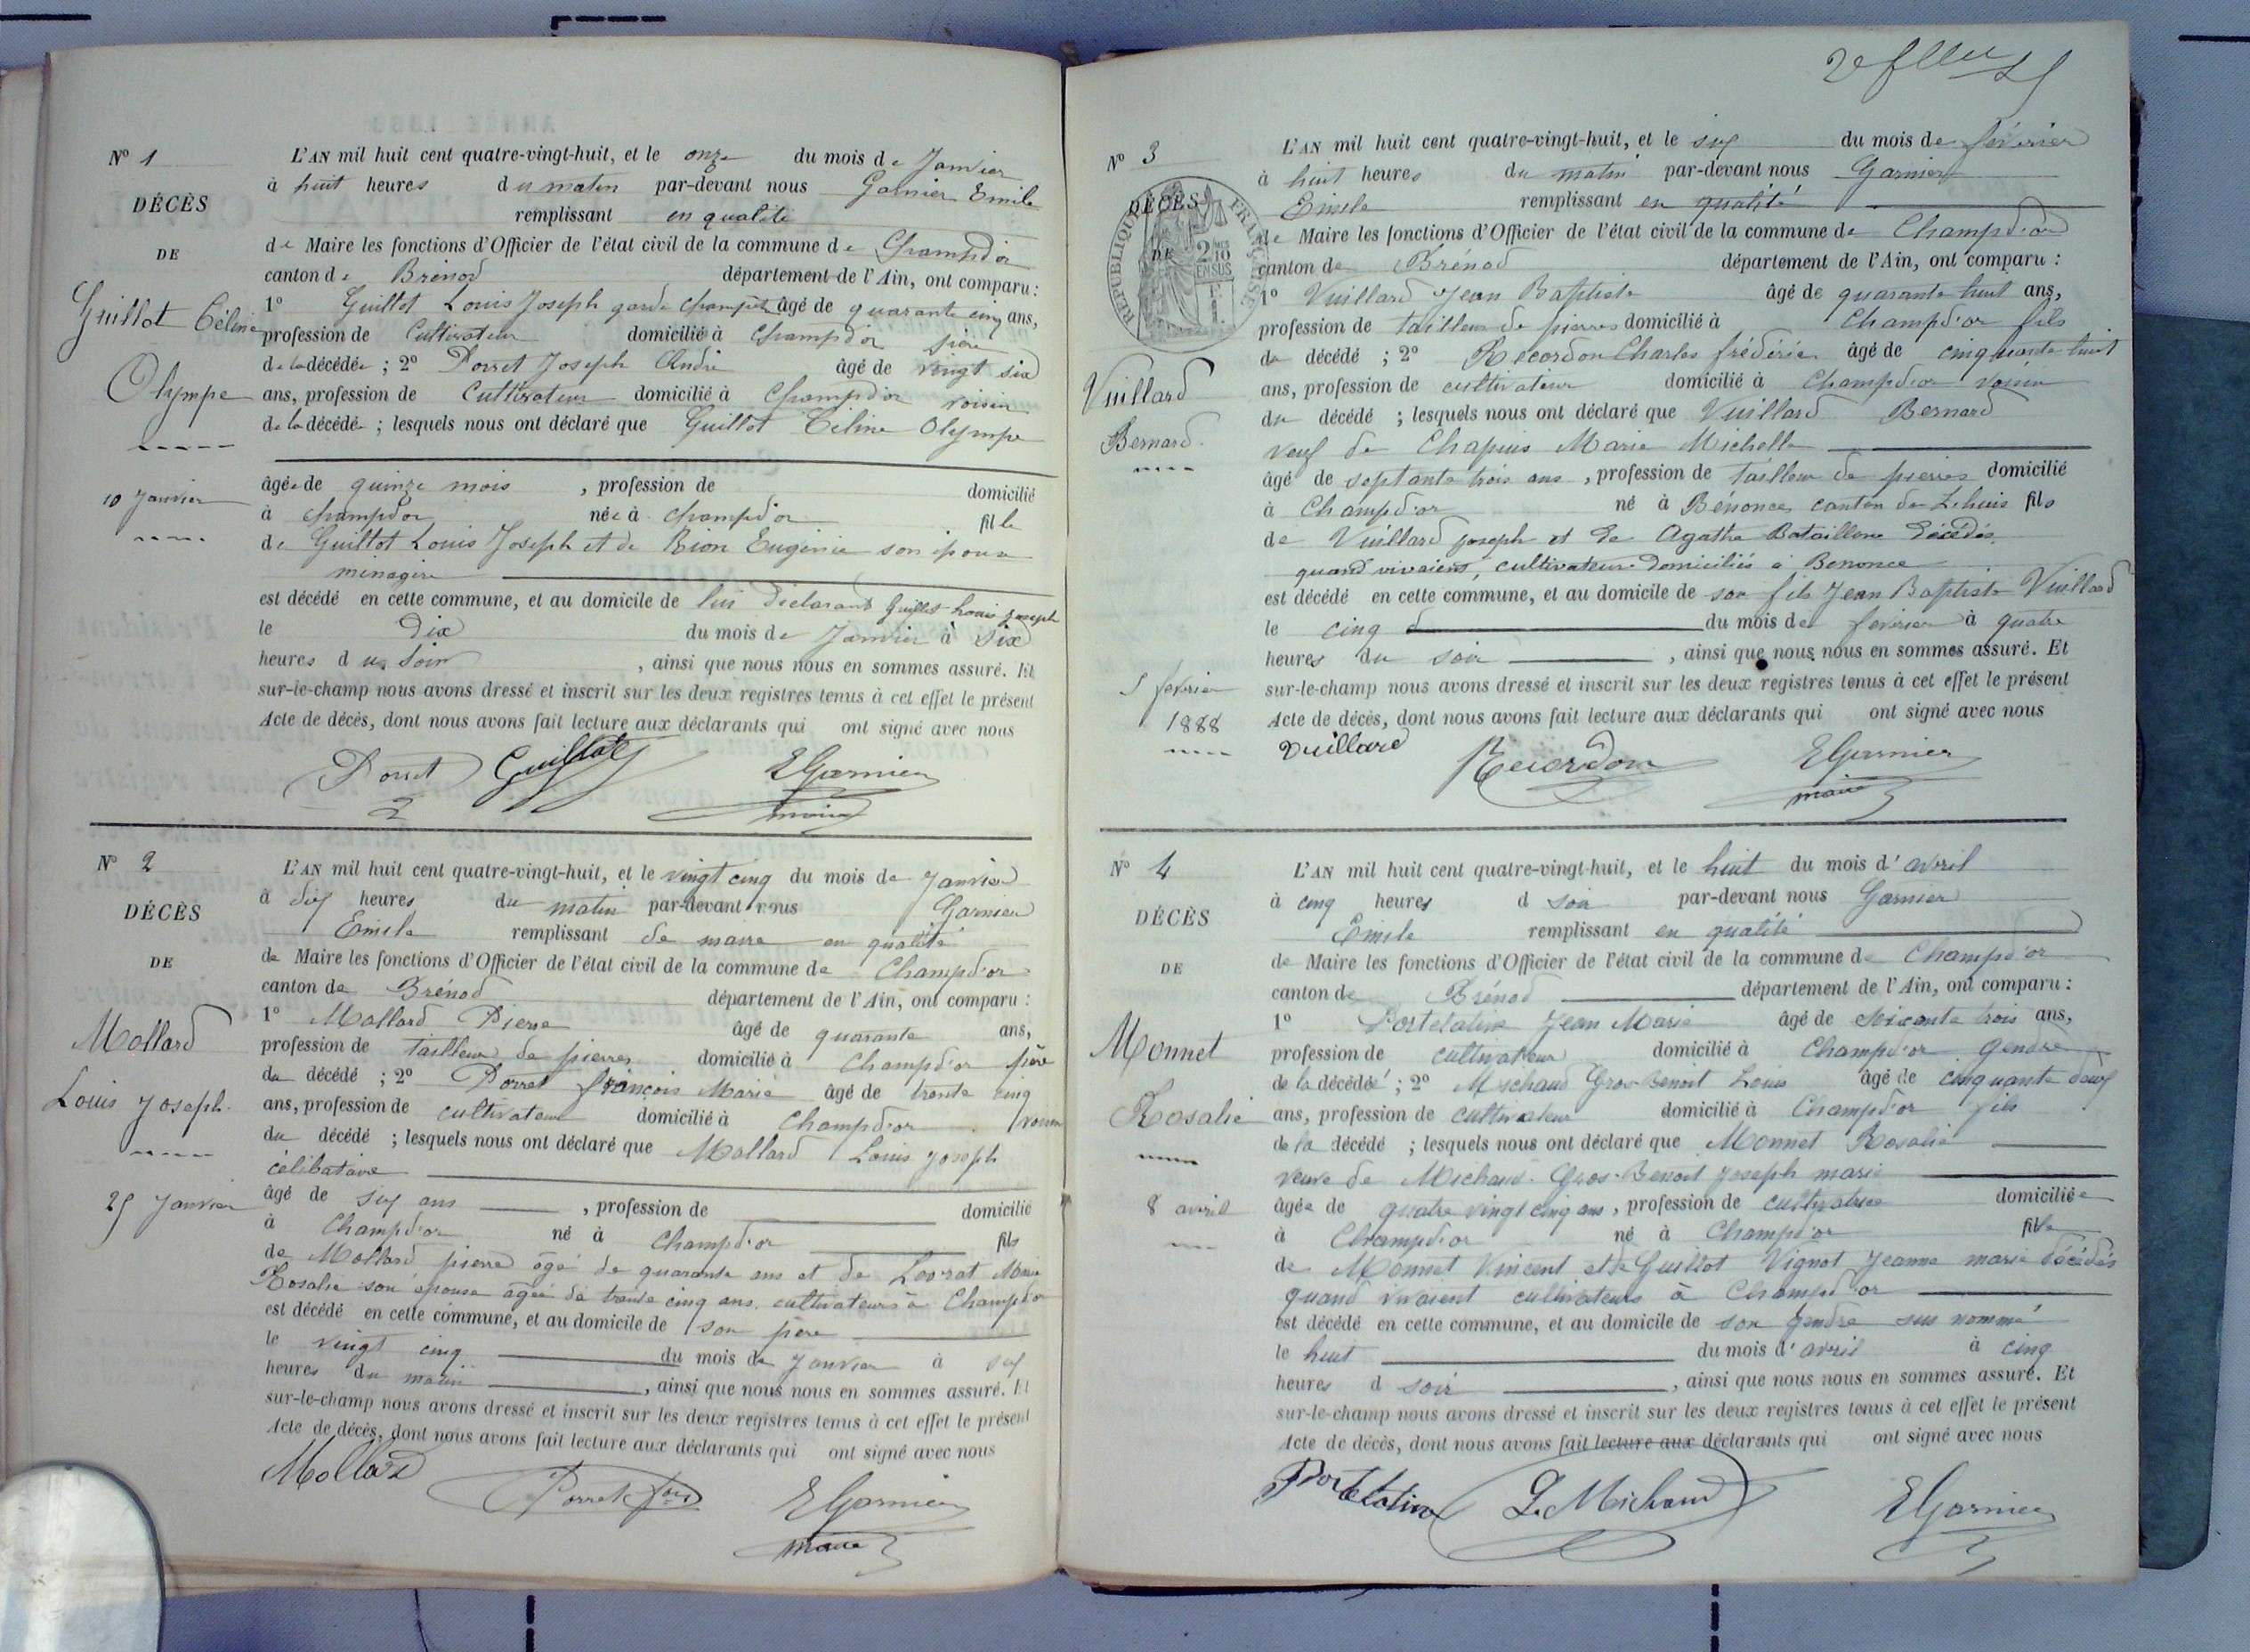 N° 1
DÉCÈS
DE
Guillot Céline
Olympe
10 Janvier
L'AN mil huit cent quatre-vingt-huit, et le onze du mois de Janvier
à huit heures du matin par-devant nous Garnier Emile
remplissant en qualité
de Maire les fonctions d'Officier de l'état civil de la commune de Champdor
canton de Brénod département de l'Ain, ont comparu :
1° Guillot Louis Joseph garde champêtre âgé de quarante cinq ans,
profession de Cultivateur domicilié à Champdor père
de la décédée ; 2° Porret Joseph André âgé de vingt six
ans, profession de Cultivateur domicilié à Champdor voisin
de la décédée ; lesquels nous ont déclaré que Guillot Céline Olympe
âgée de quinze mois , profession de domicilié
à Champdor née à Champdor fille
de Guillot Louis Joseph et de Bion Eugénie son épouse
ménagère
est décédé en cette commune, et au domicile de lui déclarant Guillot Louis Joseph
le Dix du mois de Janvier à Six
heures du Soir , ainsi que nous nous en sommes assuré. Et
sur-le-champ nous avons dressé et inscrit sur les deux registres tenus à cet effet le présent
Acte de décès, dont nous avons fait lecture aux déclarants qui ont signé avec nous
Porret Guillot EGarnier
maire
N° 2
DÉCÈS
DE
Mollard
Louis Joseph
25 Janvier
L'AN mil huit cent quatre-vingt-huit, et le vingt cinq du mois de Janvier
à dix heures du matin par-devant nous Garnier
Emile remplissant de maire en qualité
de Maire les fonctions d'Officier de l'état civil de la commune de Champd'or
canton de Brénod département de l'Ain, ont comparu :
1° Mollard Pierre âgé de quarante ans,
profession de tailleur de pierres domicilié à Champd'or père
du décédé ; 2° Porret françois Marie âgé de trente cinq
ans, profession de cultivateur domicilié à Champd'or voisin
du décédé ; lesquels nous ont déclaré que Mollard Louis Joseph
célibataire
âgé de six ans , profession de domicilié
à Champd'or né à Champd'or fils
de Mollard pierre âgé de quarante ans et de Louvat Marie
Rosalie son épouse âgée de trente cinq ans, cultivateurs à Champd'or
est décédé en cette commune, et au domicile de son père
le vingt cinq du mois de Janvier à six
heures du matin , ainsi que nous nous en sommes assuré. Et
sur-le-champ nous avons dressé et inscrit sur les deux registres tenus à cet effet le présent
Acte de décès, dont nous avons fait lecture aux déclarants qui ont signé avec nous
Mollard Porret fois EGarnier
maire
N° 3
DÉCÈS
DE
RÉPUBLIQUE FRANÇAISE
2/10 EN SUS
Vuillard
Bernard
5 février
1888
L'AN mil huit cent quatre-vingt-huit, et le six du mois de février
à huit heures du matin par-devant nous Garnier
Emile remplissant en qualité
de Maire les fonctions d'Officier de l'état civil de la commune de Champd'or
canton de Brénod département de l'Ain, ont comparu :
1° Vuillard Jean Baptiste âgé de quarante huit ans,
profession de tailleur de pierres domicilié à Champd'or fils
du décédé ; 2° Recordon Charles frédéric âgé de cinquante huit
ans, profession de cultivateur domicilié à Champd'or voisin
du décédé ; lesquels nous ont déclaré que Vuillard Bernard
veuf de Chapuis Marie Michelle
âgé de septante trois ans , profession de tailleur de pierres domicilié
à Champd'or né à Bénonce canton de Lhuis fils
de Vuillard Joseph et de Agathe Bataillone décédés
quand vivaient, cultivateurs domiciliés à Benonce
est décédé en cette commune, et au domicile de son fils Jean Baptiste Vuillard
le cinq du mois de fevrier à quatre
heures du soir , ainsi que nous nous en sommes assuré. Et
sur-le-champ nous avons dressé et inscrit sur les deux registres tenus à cet effet le présent
Acte de décès, dont nous avons fait lecture aux déclarants qui ont signé avec nous
Vuillard Recordon EGarnier
maire
N° 4
DÉCÈS
DE
Monnet
Rosalie
8 avril
L'AN mil huit cent quatre-vingt-huit, et le huit du mois d'avril
à cinq heures d soir par-devant nous Garnier
Emile remplissant en qualité
de Maire les fonctions d'Officier de l'état civil de la commune de Champd'or
canton de Brénod département de l'Ain, ont comparu :
1° Portelatine Jean Marie âgé de soixante trois ans,
profession de cultivateur domicilié à Champd'or gendre
de la décédée ; 2° Michaud Gros-Benoit Louis âgé de cinquante deux
ans, profession de cultivateur domicilié à Champd'or fils
de la décédé ; lesquels nous ont déclaré que Monnet Rosalie
veuve de Michaud-Gros-Benoit Joseph marie
âgée de quatre vingt cinq ans , profession de cultivatrice domiciliée
à Champd'or né à Champd'or fille
de Monnet Vincent et de Guillot Vignot Jeanne marie décédés
quand vivaient cultivateurs à Champd'or
est décédé en cette commune, et au domicile de son gendre sus nommé
le huit du mois d'avril à cinq
heures d soir , ainsi que nous nous en sommes assuré. Et
sur-le-champ nous avons dressé et inscrit sur les deux registres tenus à cet effet le présent
Acte de décès, dont nous avons fait lecture aux déclarants qui ont signé avec nous
Portelatine L. Michaud EGarnier